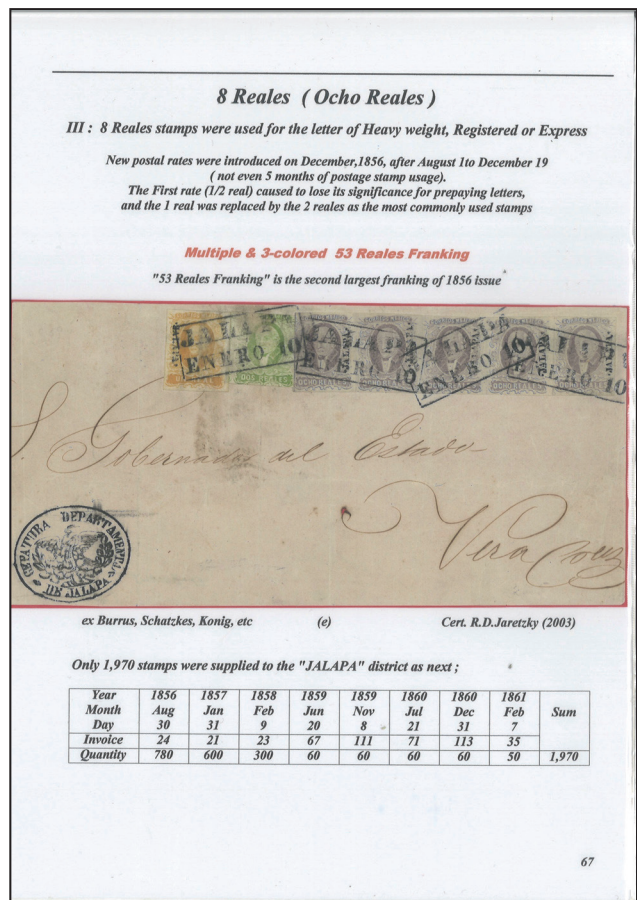 8 Reales ( Ocho Reales )
III : 8 Reales stamps were used for the letter of Heavy weight, Registered or Express
New postal rates were introduced on December,1856, after August 1to December 19
( not even 5 months of postage stamp usage).
The First rate (1/2 real) caused to lose its significance for prepaying letters,
and the 1 real was replaced by the 2 reales as the most commonly used stamps
Multiple & 3-colored 53 Reales Franking
"53 Reales Franking" is the second largest franking of 1856 issue
JALAPA JALAPA JALAPA JALAPA
ENERO 10 ENERO 10 ENERO 10 ENERO 10
DOS REALES OCHO REALES OCHO REALES OCHO REALES OCHO REALES OCHO REALES
S. Gobernador del Estado
Vera Cruz
DEPARTAMENTAL
DE JALAPA
ex Burrus, Schatzkes, Konig, etc (e) Cert. R.D.Jaretzky (2003)
Only 1,970 stamps were supplied to the "JALAPA" district as next ;
Year 1856 1857 1858 1859 1859 1860 1860 1861
Month Aug Jan Feb Jun Nov Jul Dec Feb Sum
Day 30 31 9 20 8 21 31 7
Invoice 24 21 23 67 111 71 113 35
Quantity 780 600 300 60 60 60 60 50 1,970
67